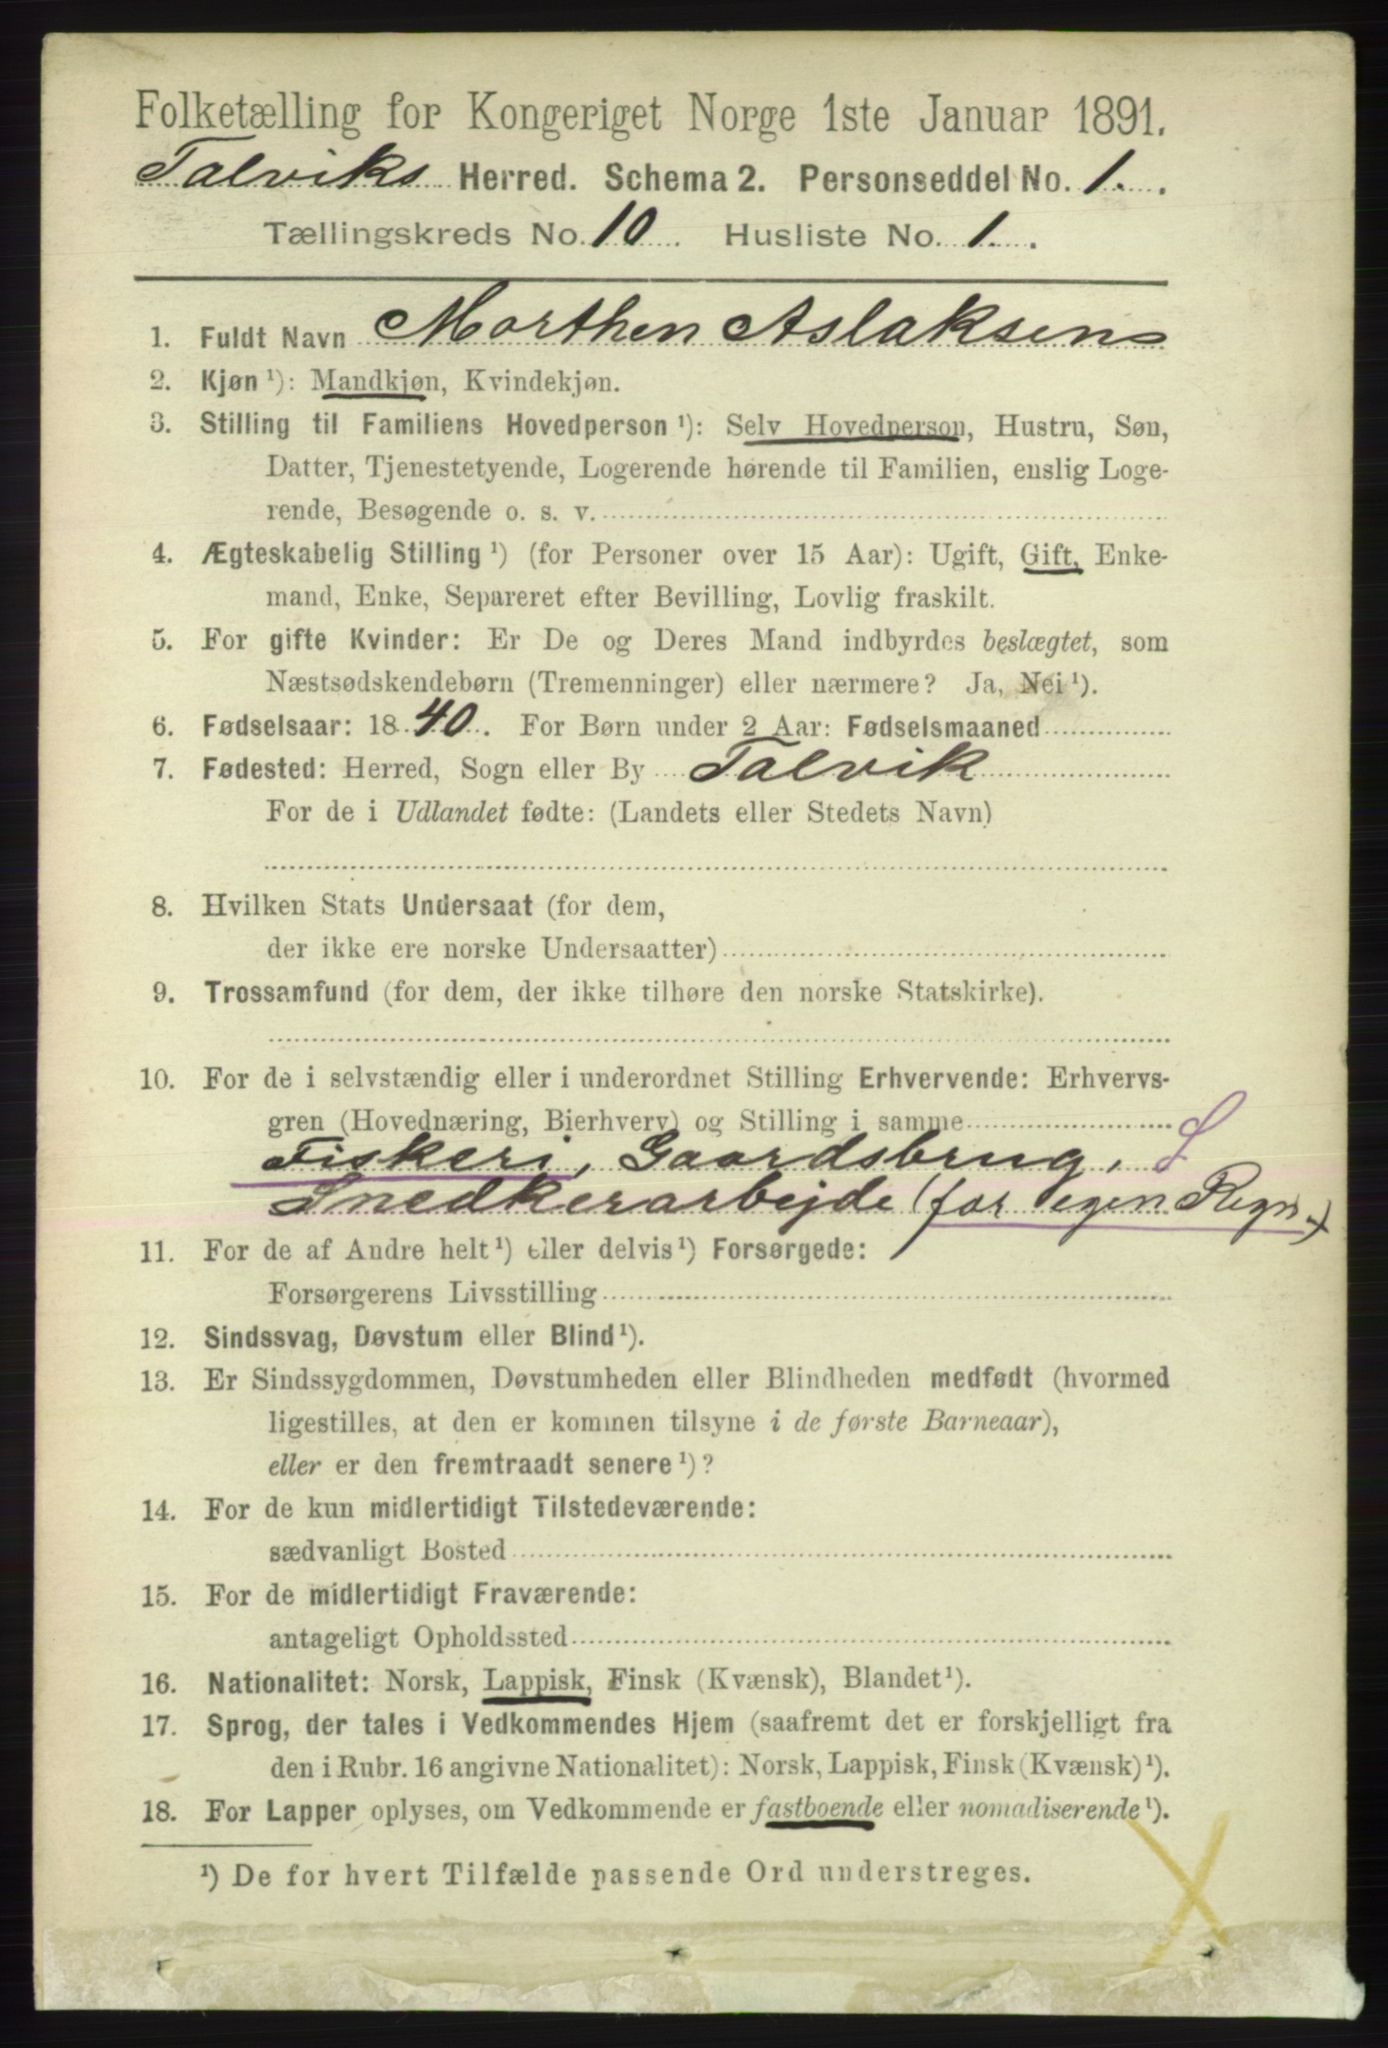 Folketælling for Kongeriget Norge 1ste Januar 1891.
Talviks Herred. Schema 2. Personseddel No. 1.
Tællingskreds No. 10 Husliste No. 1.
1. Fuldt Navn Morthen Aslaksen
2. Kjøn¹): Mandkjøn, Kvindekjøn.
3. Stilling til Familiens Hovedperson¹): Selv Hovedperson, Hustru, Søn,
Datter, Tjenestetyende, Logerende hørende til Familien, enslig Loge-
rende, Besøgende o. s. v.
4. Ægteskabelig Stilling¹) (for Personer over 15 Aar): Ugift, Gift, Enke-
mand, Enke, Separeret efter Bevilling, Lovlig fraskilt.
5. For gifte Kvinder: Er De og Deres Mand indbyrdes beslægtet, som
Næstsødskendebørn (Tremenninger) eller nærmere? Ja, Nei¹).
6. Fødselsaar: 1840. For Børn under 2 Aar: Fødselsmaaned
7. Fødested: Herred, Sogn eller By Talvik
For de i Udlandet fødte: (Landets eller Stedets Navn)
8. Hvilken Stats Undersaat (for dem,
der ikke ere norske Undersaatter)
9. Trossamfund (for dem, der ikke tilhøre den norske Statskirke).
10. For de i selvstændig eller i underordnet Stilling Erhvervende: Erhvervs-
gren (Hovednæring, Bierhverv) og Stilling i samme
Fiskeri, Gaardsbrug, S
Snedkerarbejde (for egen Regn.)
11. For de af Andre helt¹) eller delvis¹) Forsørgede:
Forsørgerens Livsstilling
12. Sindssvag, Døvstum eller Blind¹).
13. Er Sindssygdommen, Døvstumheden eller Blindheden medfødt (hvormed
ligestilles, at den er kommen tilsyne i de første Barneaar),
eller er den fremtraadt senere¹)?
14. For de kun midlertidigt Tilstedeværende:
sædvanligt Bosted
15. For de midlertidigt Fraværende:
antageligt Opholdssted
16. Nationalitet: Norsk, Lappisk, Finsk (Kvænsk), Blandet¹).
17. Sprog, der tales i Vedkommendes Hjem (saafremt det er forskjelligt fra
den i Rubr. 16 angivne Nationalitet): Norsk, Lappisk, Finsk (Kvænsk)¹).
18. For Lapper oplyses, om Vedkommende er fastboende eller nomadiserende¹).
¹) De for hvert Tilfælde passende Ord understreges.